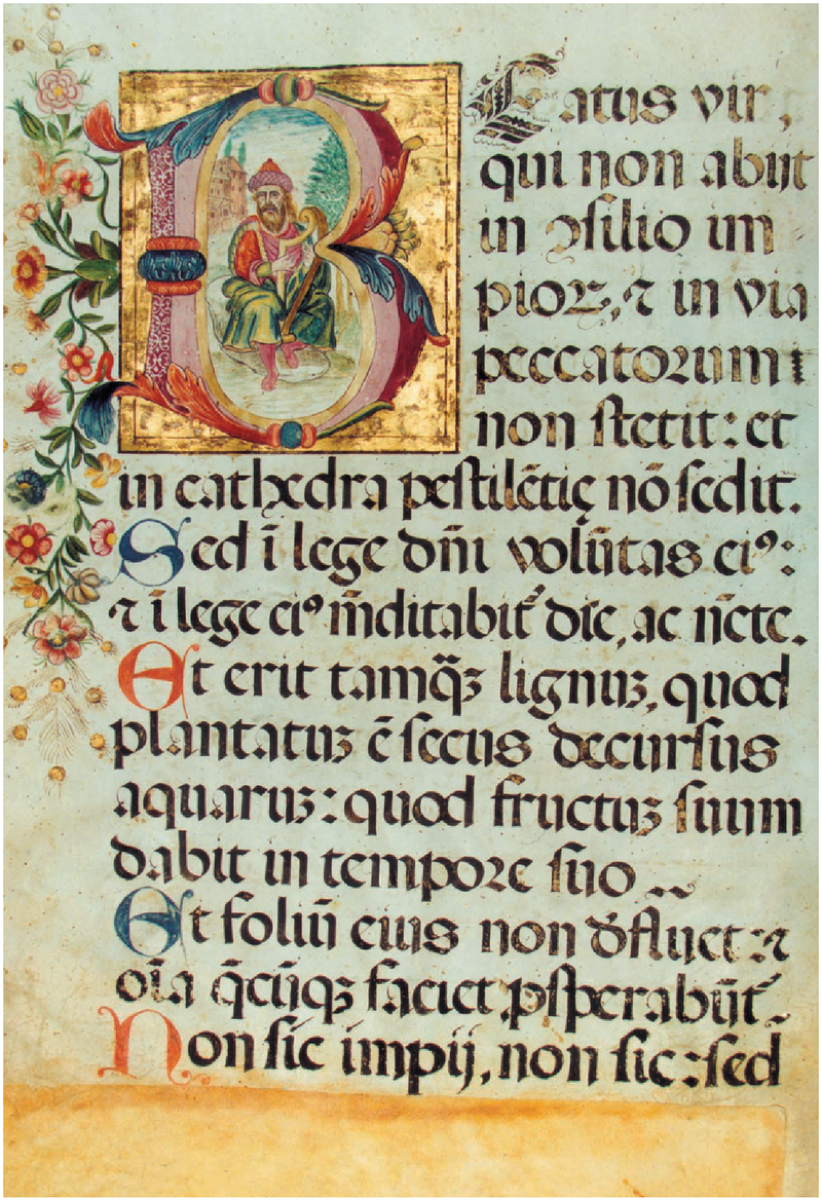 Beatus vir,
qui non abijt
in ꝯsilio im
pioꝝ, ⁊ in via
peccatorum
non stetit: et
in cathedra pestilẽtię nõ sedit.
Sed ĩ lege dñi volũtas eiꝰ:
⁊ ĩ lege eiꝰ m̃ditabit᷑ die, ac ñcte.
Et erit tamq̃ꝫ lignuꝫ, quod
plantatuꝫ ẽ secus decursus
aquaruꝫ: quod fructuꝫ suum
dabit in tempore suo
Et foliũ eius non d̃fluet: ⁊
oĩa q̃cũqꝫ faciet ꝓsperabũt᷑.
Non sic impij, non sic: sed